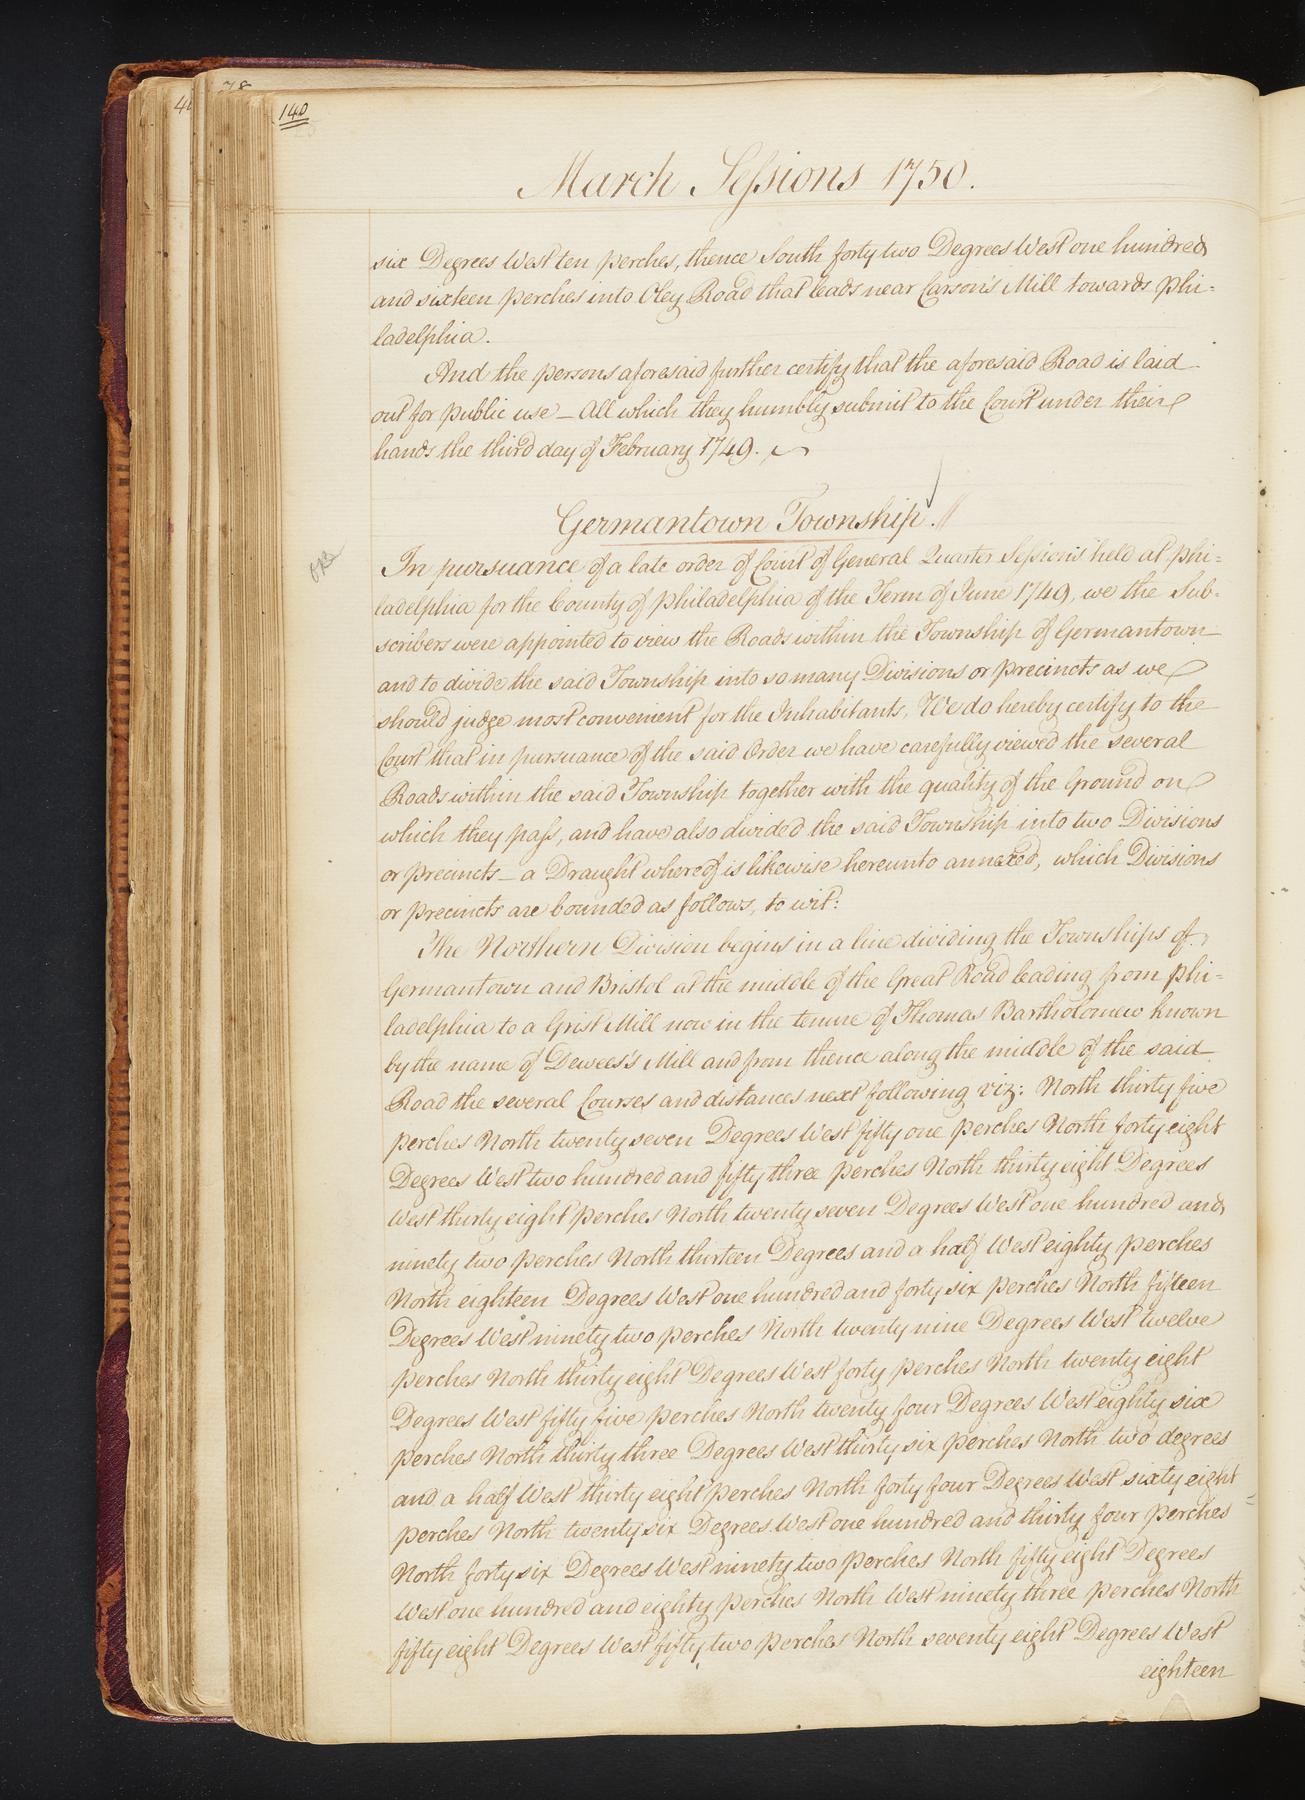 140
March Sessions 1750.
six Degrees West ten perches, thence South forty two Degrees West one hundred
and sixteen perches into Oley Road that leads near Carson's Mill towards Phi=
ladelphia.
And the persons aforesaid further certify that the aforesaid Road is laid
out for public use – All which they humbly submit to the Court under their
hands the third day of February 1749.
Germantown Township.
In pursuance of a late order of Court of General Quarter Sessions held at Phi=
ladelphia for the County of Philadelphia of the Term of June 1749, we the Sub=
scribers were appointed to view the Roads within the Township of Germantown
and to divide the said Township into so many Divisions or precincts as we
should judge most convenient for the Inhabitants, We do hereby certify to the
Court that in pursuance of the said Order we have carefully viewed the several
Roads within the said Township together with the quality of the Ground on
which they pass, and have also divided the said Township into two Divisions
or precincts – a Draught whereof is likewise hereunto annexed, which Divisions
or precincts are bounded as follows, to wit:
The Northern Division begins in a line dividing the Townships of
Germantown and Bristol at the middle of the Great Road leading from Phi=
ladelphia to a Grist Mill now in the tenure of Thomas Bartholomew known
by the name of Dewees's Mill and from thence along the middle of the said
Road the several Courses and distances next following viz: North thirty five
perches North twenty seven Degrees West fifty one perches North forty eight
Degrees West two hundred and fifty three perches North thirty eight Degrees
West thirty eight perches North twenty seven Degrees West one hundred and
ninety two perches North thirteen Degrees and a half West eighty perches
North eighteen Degrees West one hundred and forty six perches North fifteen
Degrees West ninety two perches North twenty nine Degrees West twelve
perches North thirty eight Degrees West forty perches North twenty eight
Degrees West fifty five perches North twenty four Degrees West eighty six
perches North thirty three Degrees West thirty six perches North two degrees
and a half West thirty eight perches North forty four Degrees West sixty eight
perches North twenty six Degrees West one hundred and thirty four perches
North forty six Degrees West ninety two perches North fifty eight Degrees
West one hundred and eighty perches North West ninety three perches North
fifty eight Degrees West fifty two perches North seventy eight Degrees West
eighteen